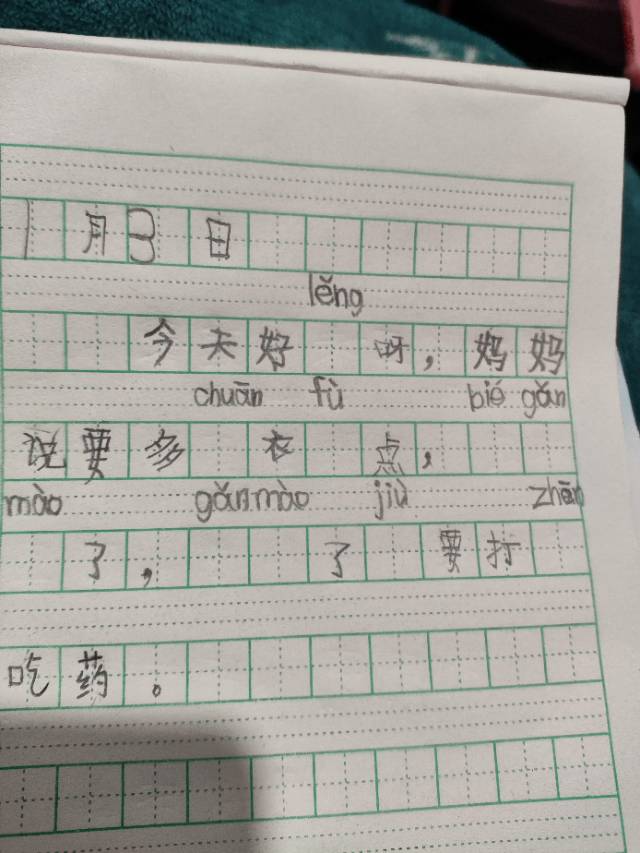 1月3日
lěng
今天好 呀，妈妈
chuān fù bié gǎn
说要多 衣 点，
mào gǎnmào jiù zhēn
了， 了 要打
吃药。